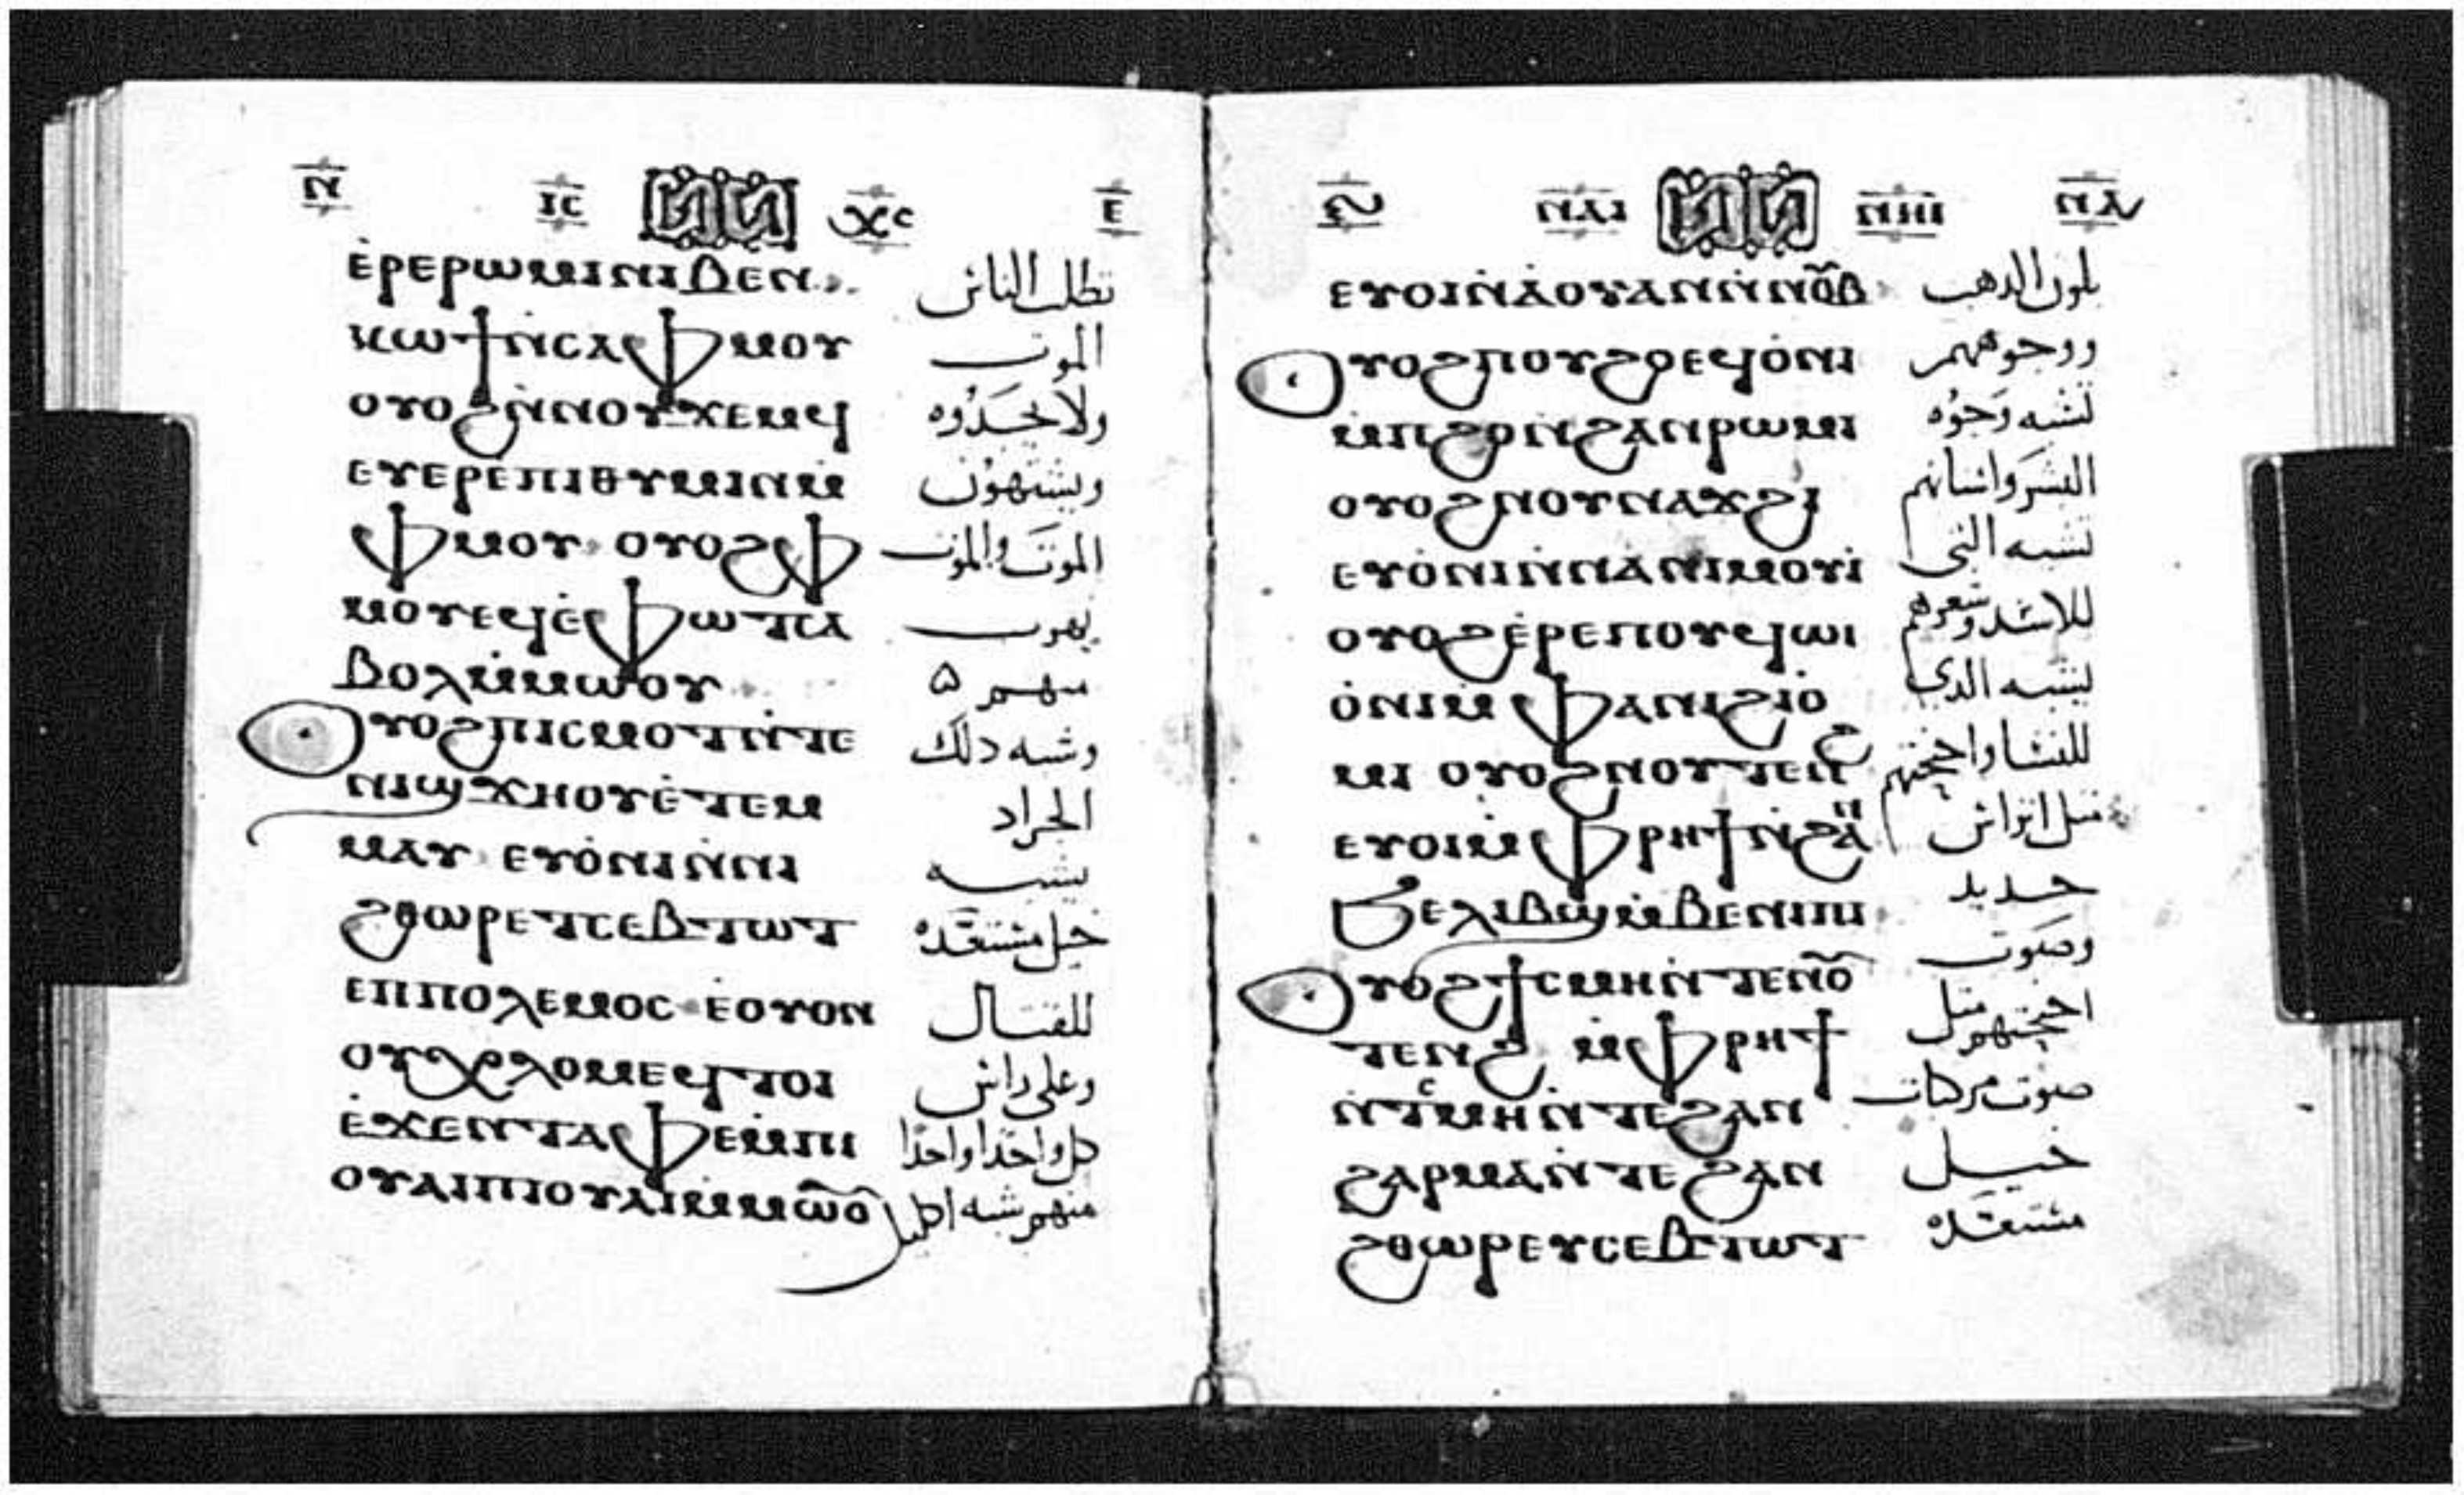 ⲛ̅ ⲓ̅ⲥ̅ ⲭ̅ⲥ̅ ⲉ̅
ⲉ̇ⲣⲉⲣⲱⲙⲓⲛⲓϧⲉⲛ تطلب الناس
ⲕⲱϯⲛ̇ⲥⲁⲫⲙⲟⲩ الموت
ⲟⲩⲟϩⲛ̇ⲛⲟⲩϫⲉⲙϥ ولا يجدوه
ⲉⲩⲉⲣⲉⲡⲓⲑⲩⲙⲓⲛⲙ̇ ويشتهون
ⲫⲙⲟⲩ ⲟⲩⲟϩⲫ الموت والموت
ⲙⲟⲩⲉϥⲉ̇ⲫⲱⲧⲥⲁ يهرب
ⲃⲟⲗⲙ̇ⲙⲱⲟⲩ منهم ه
ⲟⲩⲟϩⲡⲓⲥⲙⲟⲧⲛ̇ⲧⲉ وشبه دلك
ⲛⲓϣϫⲏⲟⲩⲉ̇ⲧⲉⲙ الجراد
ⲙⲁⲩ ⲉⲩⲟ̇ⲛⲓⲛ̇ⲛⲓ يشبه
ϩⲑⲱⲣⲉⲧⲥⲉⲃⲧⲱⲧ خيل مستعده
ⲉⲡⲡⲟⲗⲉⲙⲟⲥ ⲉ̇ⲟⲩⲟⲛ للقتال
ⲟⲩⲭⲗⲟⲙⲉϥⲧⲟⲓ وعلى راس
ⲉ̇ϫⲉⲛⲧⲁⲫⲉⲙ̇ⲡⲓ كل واحدا واحدا
ⲟⲩⲁⲓⲡⲓⲟⲩⲁⲓⲙ̇ⲙⲱⲟ منهم شبه اكليل
ⲋ̅ ⲛⲁⲓ ⲛⲏⲓ ⲛⲁ
ⲉⲩⲟⲓⲛ̇ⲁ̇ⲟⲩⲁⲛⲛ̇ⲛⲟⲃ بلون الدهب
ⲟⲩⲟϩⲡⲟⲩϩⲟⲉϥⲟ̇ⲛⲓ ووجوههم
ⲙ̇ⲡϩⲟⲛϩⲁⲛⲣⲱⲙⲓ تشبه وجوه
ⲟⲩⲟϩⲛⲟⲩⲛⲁϫϩⲓ البشر واسنانهم
ⲉⲩⲟ̇ⲛⲓⲛ̇ⲛⲁⲛⲓⲙⲟⲩⲓ̇ تشبه التي
ⲟⲩⲟϩⲉ̇ⲣⲉⲡⲟⲩϥⲱⲓ للاسد وشعرهم
ⲟ̇ⲛⲓⲙ̇ⲫⲁⲛⲓϩⲓⲟ̇ يشبه الدي
ⲙⲓ ⲟⲩⲟϩⲛⲟⲩⲧⲉⲛϩ للنسا واجنحتهم
ⲉⲩⲟⲓⲙ̇ⲫⲣⲏϯⲛ̇ϩⲁⲛ مثل اتراس
ϧⲉⲗⲓⲃϣⲙ̇ⲃⲉⲛⲓⲡⲓ حديد
ⲟⲩⲟϩϯⲥⲙⲏⲛ̇ⲧⲉⲛⲟ وصوت
ⲧⲉⲛϩ ⲙ̇ⲫⲣⲏϯ اجنحتهم مثل
ⲛ̇ⲧⲥⲙⲏⲛ̇ⲧⲉϩⲁⲛ صوت مركبات
ϩⲁⲣⲙⲁⲛ̇ⲧⲉϩⲁⲛ خيل
ϩⲑⲱⲣⲉⲩⲥⲉⲃⲧⲱⲧ مستعده